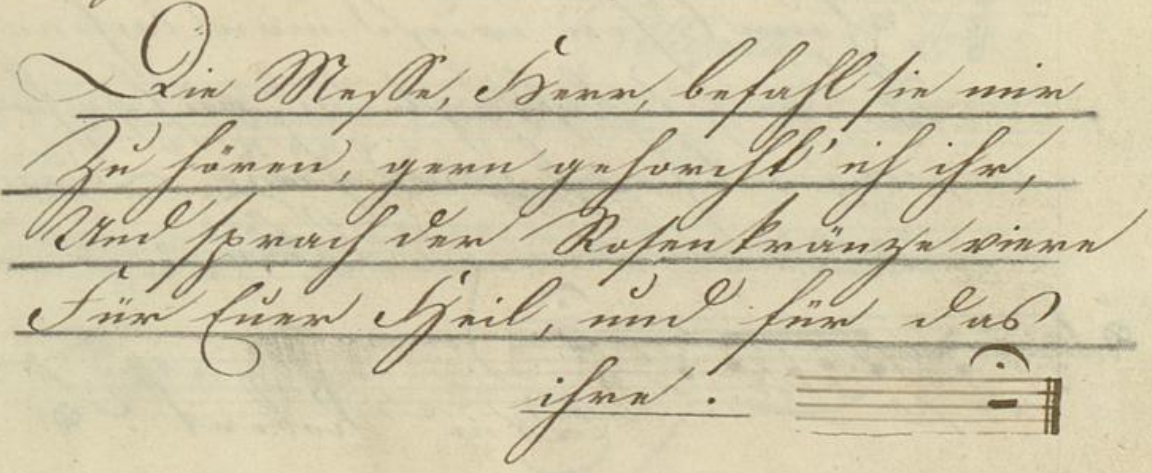 Die Messe, Herr, befahl sie mir
Zu hören, gern gehorcht' ich ihr,
Und sprach der Rosenkränze viere
Für Euer Heil, und für das
ihre.